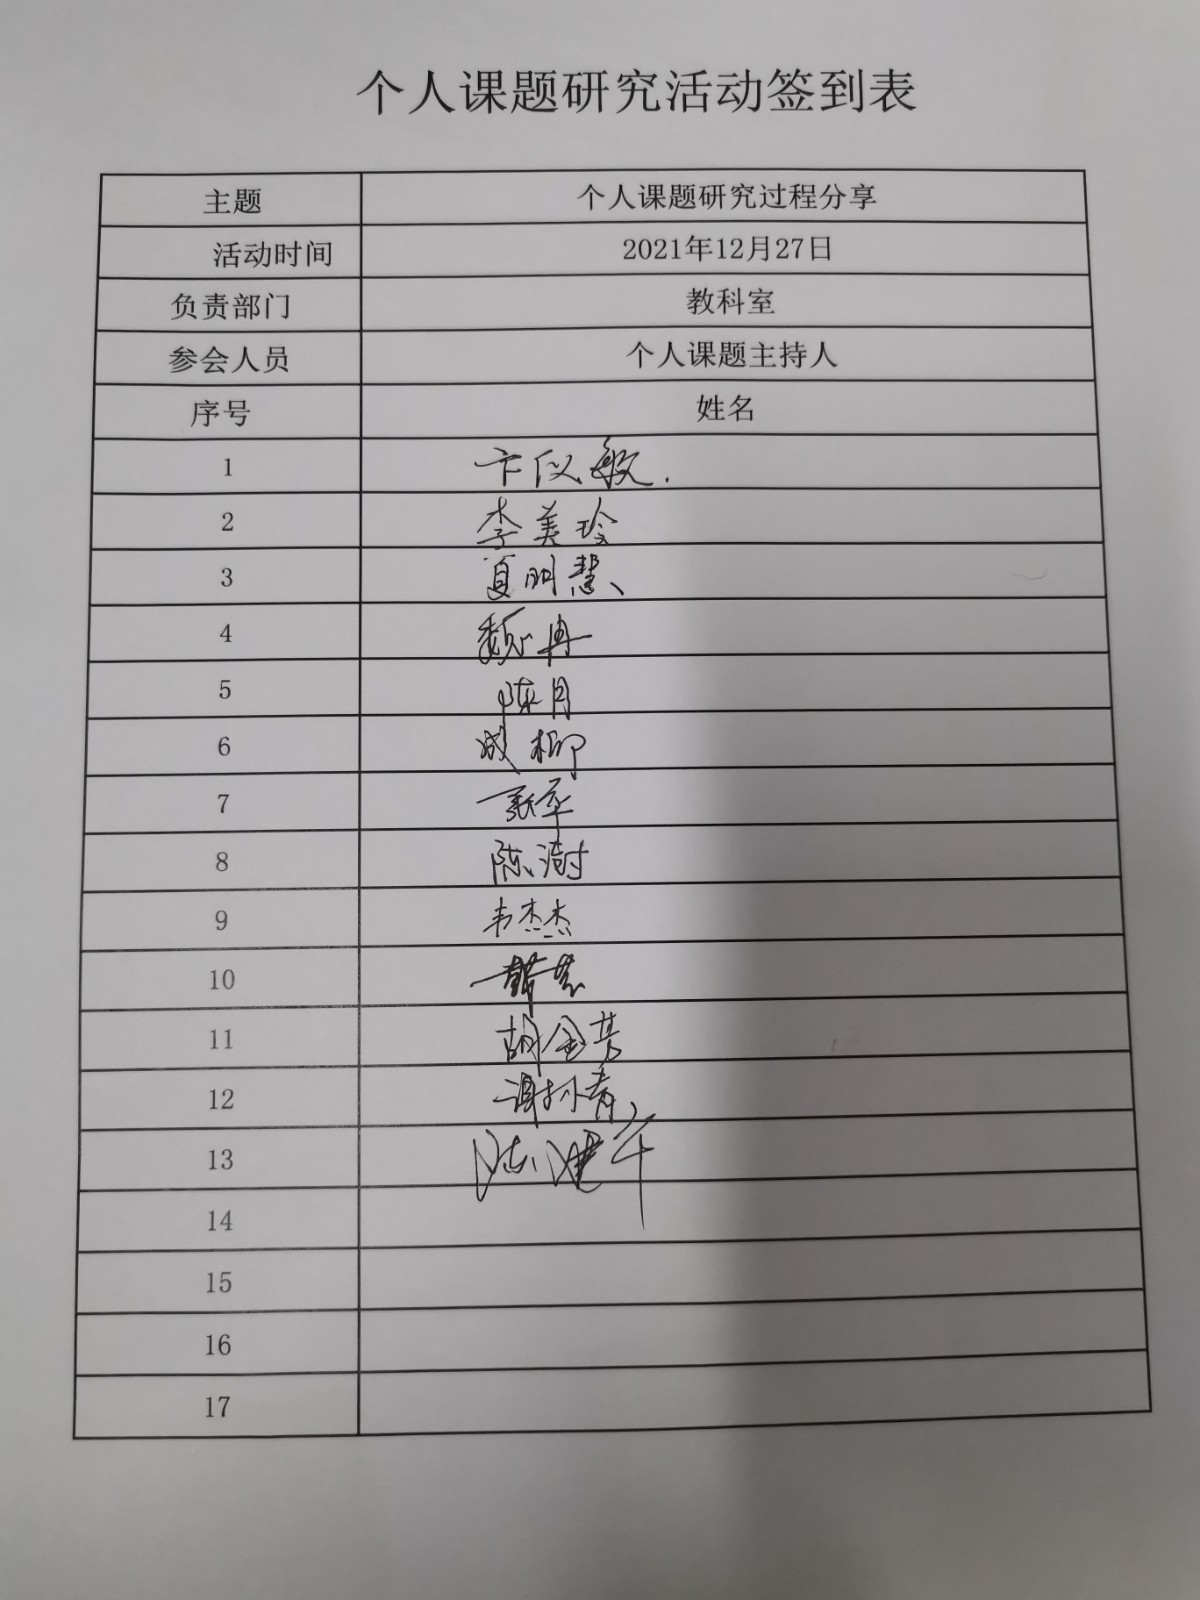 个人课题研究活动签到表
主题 个人课题研究过程分享
活动时间 2021年12月27日
负责部门 教科室
参会人员 个人课题主持人
序号 姓名
1 卞仪敏
2 李美玲
3 夏明慧
4 魏冉
5 陈月
6 成柳
7
8 陈澍
9 韦杰杰
10
11 胡金芳
12 谢抒青
13 陈建军
14
15
16
17